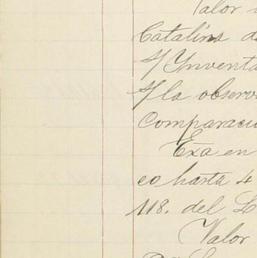 Valor
Catalina d
S/ Ynventa
S/ la observ
Comparacio
Exa en
co hasta 4
118. del L
Valor